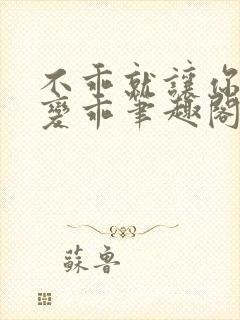 不乖就讓你
變乖筆趣閣
蘇魯